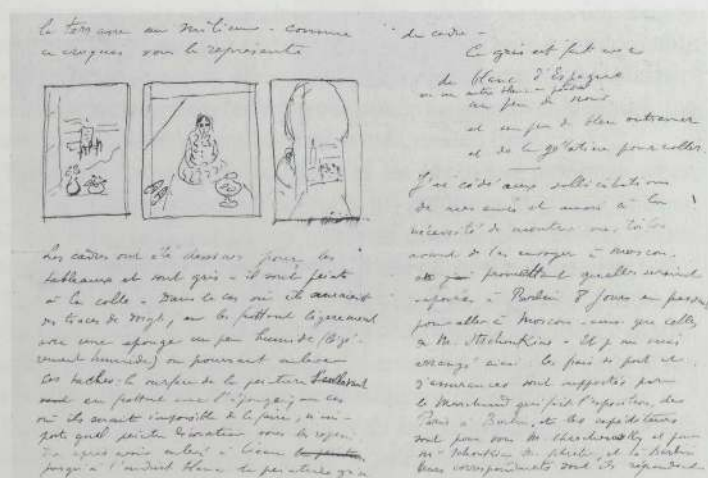 la terrasse au milieu - comme
ce croquis vous le représente
Les cadres ont été dessinés pour les
tableaux et sont gris - ils sont peints
à la colle - Dans le cas où ils auraient
des traces de doigt, en les frottant légèrement
avec une éponge un peu humide (légè-
rement humide) on pourrait enlever
les taches - la surface de la peinture
en frottant avec l'éponge, au cas
où ils serait impossible de le faire, n'im-
porte quel peintre décorateur, vous les
après avoir enlevé à l'eau
jusqu'à l'endroit blanc la peinture qu'il
du cadre -
Ce gris est fait avec
du blanc d'Espagne
ou un autre blanc
un peu de noir
et un peu de bleu outremer
et de la gélatine pour coller.
J'ai cédé aux sollicitations
de mes amis et aussi à la
nécessité de montrer mes toiles
avant de les envoyer à Moscou.
qu'elles seraient
exposées à Berlin 8 jours en passant
pour aller à Moscou - ainsi que celles
à M. Stschoukine - Et je me suis
arrangé ainsi : les frais de port et
d'assurances sont supportés par
le Marchand qui fait l'exposition, de
Paris à Berlin, et les expéditeurs
sont pour vous M. et pour
M. Stschoukine M. et à Berlin
leurs correspondants dont ils répondent